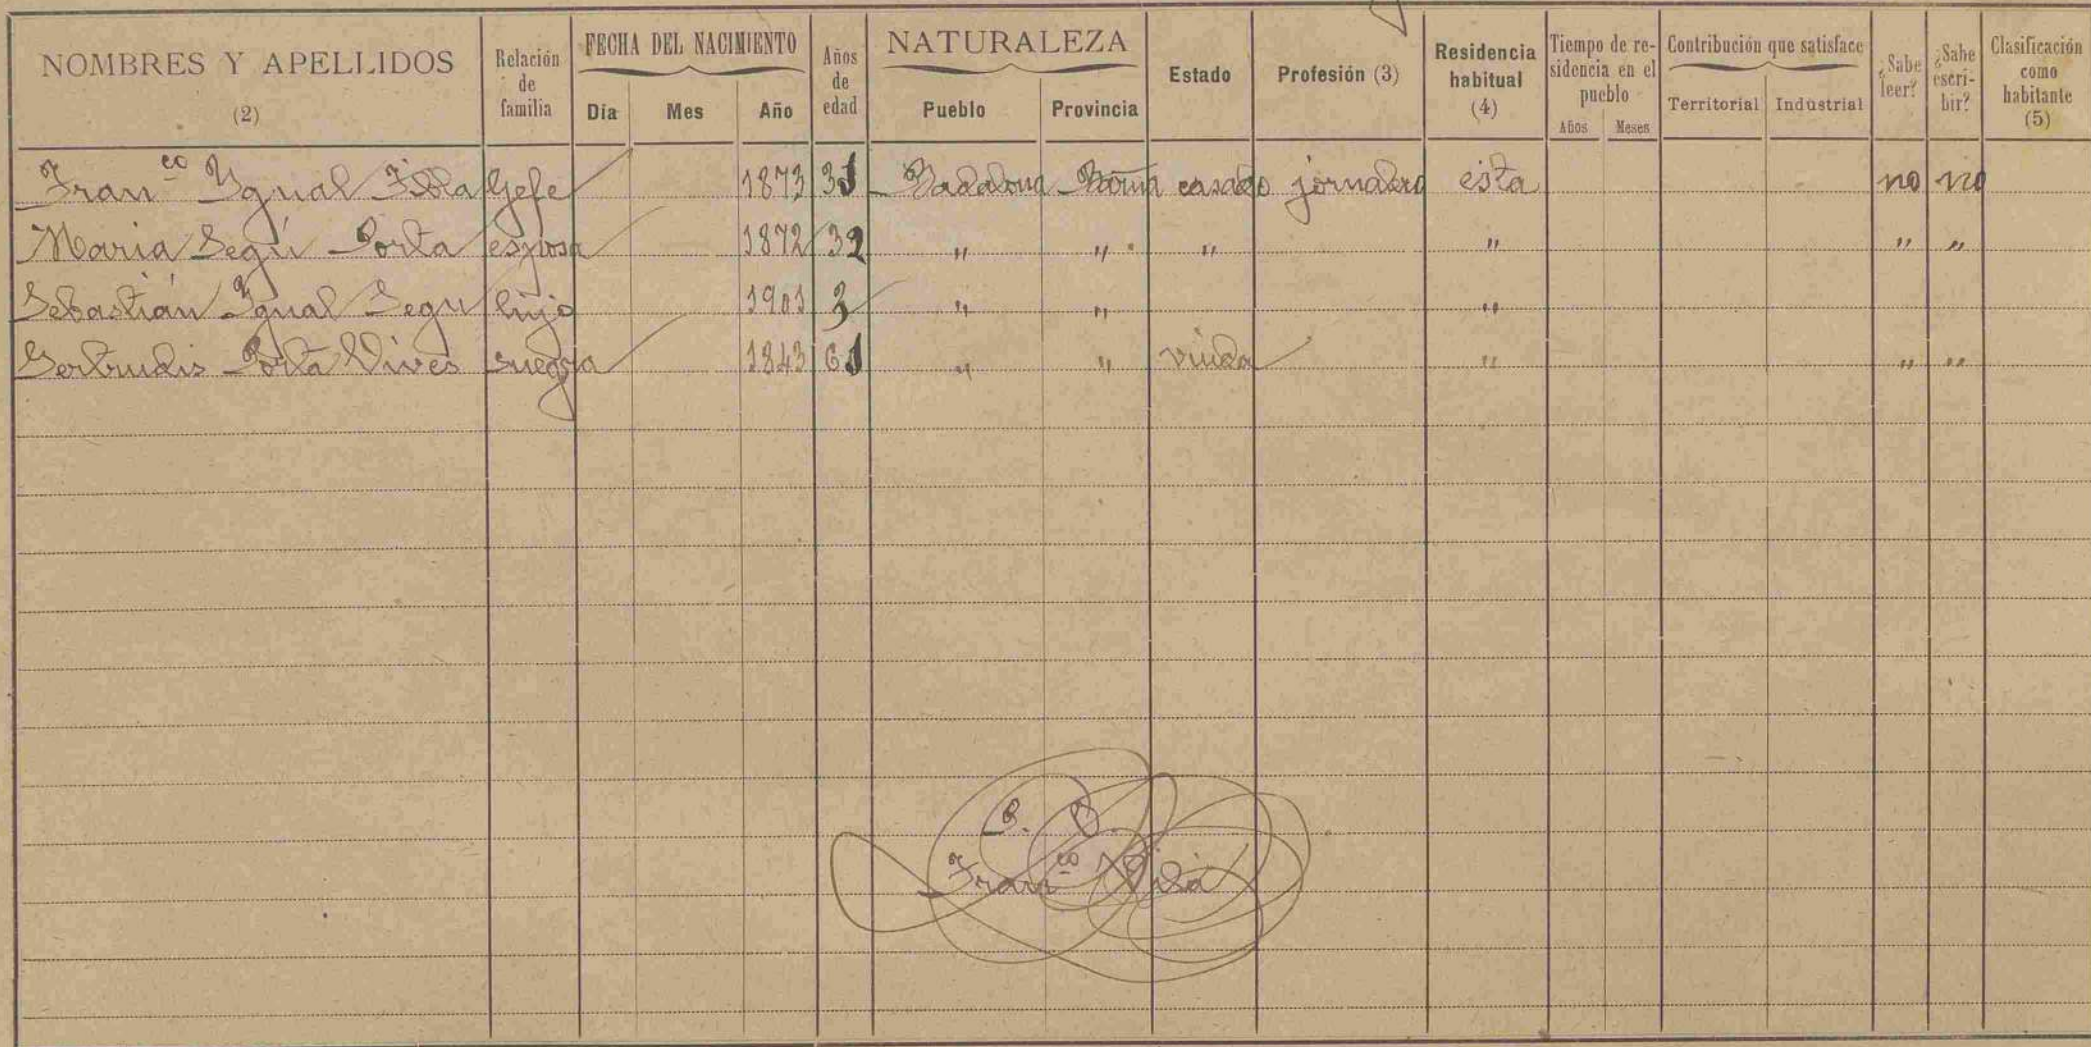 NOMBRES Y APELLIDOS (2) Relación de familia FECHA DEL NACIMIENTO Día Mes Año Años de edad NATURALEZA Pueblo Provincia Estado Profesión (3) Residencia habitual (4) Tiempo de residencia en el pueblo Años Meses Contribución que satisface Territorial Industrial ¿Sabe leer? ¿Sabe escribir? Clasificación como habitante (5)
Fran.co Ygual Gefe 1873 31 Badalona casado jornalero esta no no
Maria Segú Porta esposa 1872 32 " " " " " "
Sebastián Ygual Segu hijo 1901 3 " " "
Gertrudis Porta Vives suegra 1843 61 " " viuda " " "
P. O.
Fran.co Vilá